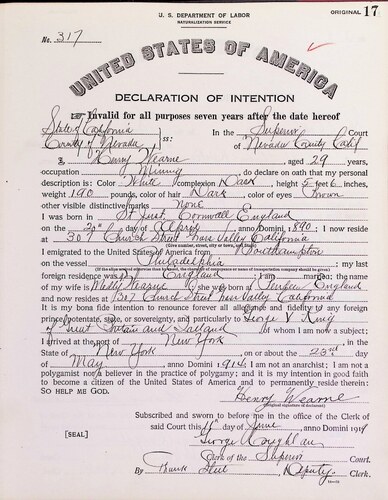 U. S. DEPARTMENT OF LABOR
NATURALIZATION SERVICE
ORIGINAL 17
No. 317
UNITED STATES OF AMERICA
DECLARATION OF INTENTION
Invalid for all purposes seven years after the date hereof
State of California
County of Nevada ss: In the Superior Court
of Nevada County Calif
I, Henry Wearne, aged 29 years,
occupation Mining, do declare on oath that my personal
description is: Color White, complexion Dark, height 5 feet 6 inches,
weight 190 pounds, color of hair Dark, color of eyes Brown
other visible distinctive marks None
I was born in St Just, Cornwall England
on the day of April, anno Domini 1890; I now reside
at 307 Church Street Grass Valley California
I emigrated to the United States of America from Southampton
on the vessel Philadelphia; my last
foreign residence was England. I am married; the name
of my wife is Wearne; she was born at England
and now resides at 307 Church Street Grass Valley California
It is my bona fide intention to renounce forever all allegiance and fidelity to any foreign
prince, potentate, state, or sovereignty, and particularly to George V King
of Great Britain and Ireland, of whom I am now a subject;
I arrived at the port of New York, in the
State of New York, on or about the day
of May, anno Domini 1914; I am not an anarchist; I am not a
polygamist nor a believer in the practice of polygamy; and it is my intention in good faith
to become a citizen of the United States of America and to permanently reside therein:
SO HELP ME GOD.
Henry Wearne
Subscribed and sworn to before me in the office of the Clerk of
[SEAL] said Court this day of June, anno Domini 191
George Coughlan
Clerk of the Superior Court.
By Frank Deputy Clerk.